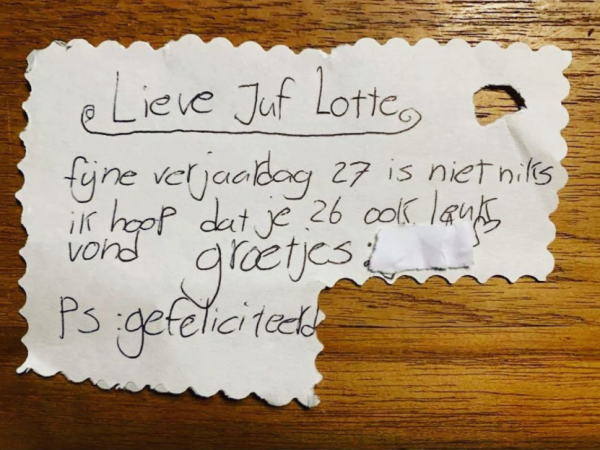 Lieve Juf Lotte
fijne verjaardag 27 is niet niks
ik hoop dat je 26 ook leuk
vond groetjes:
PS :gefeliciteerd